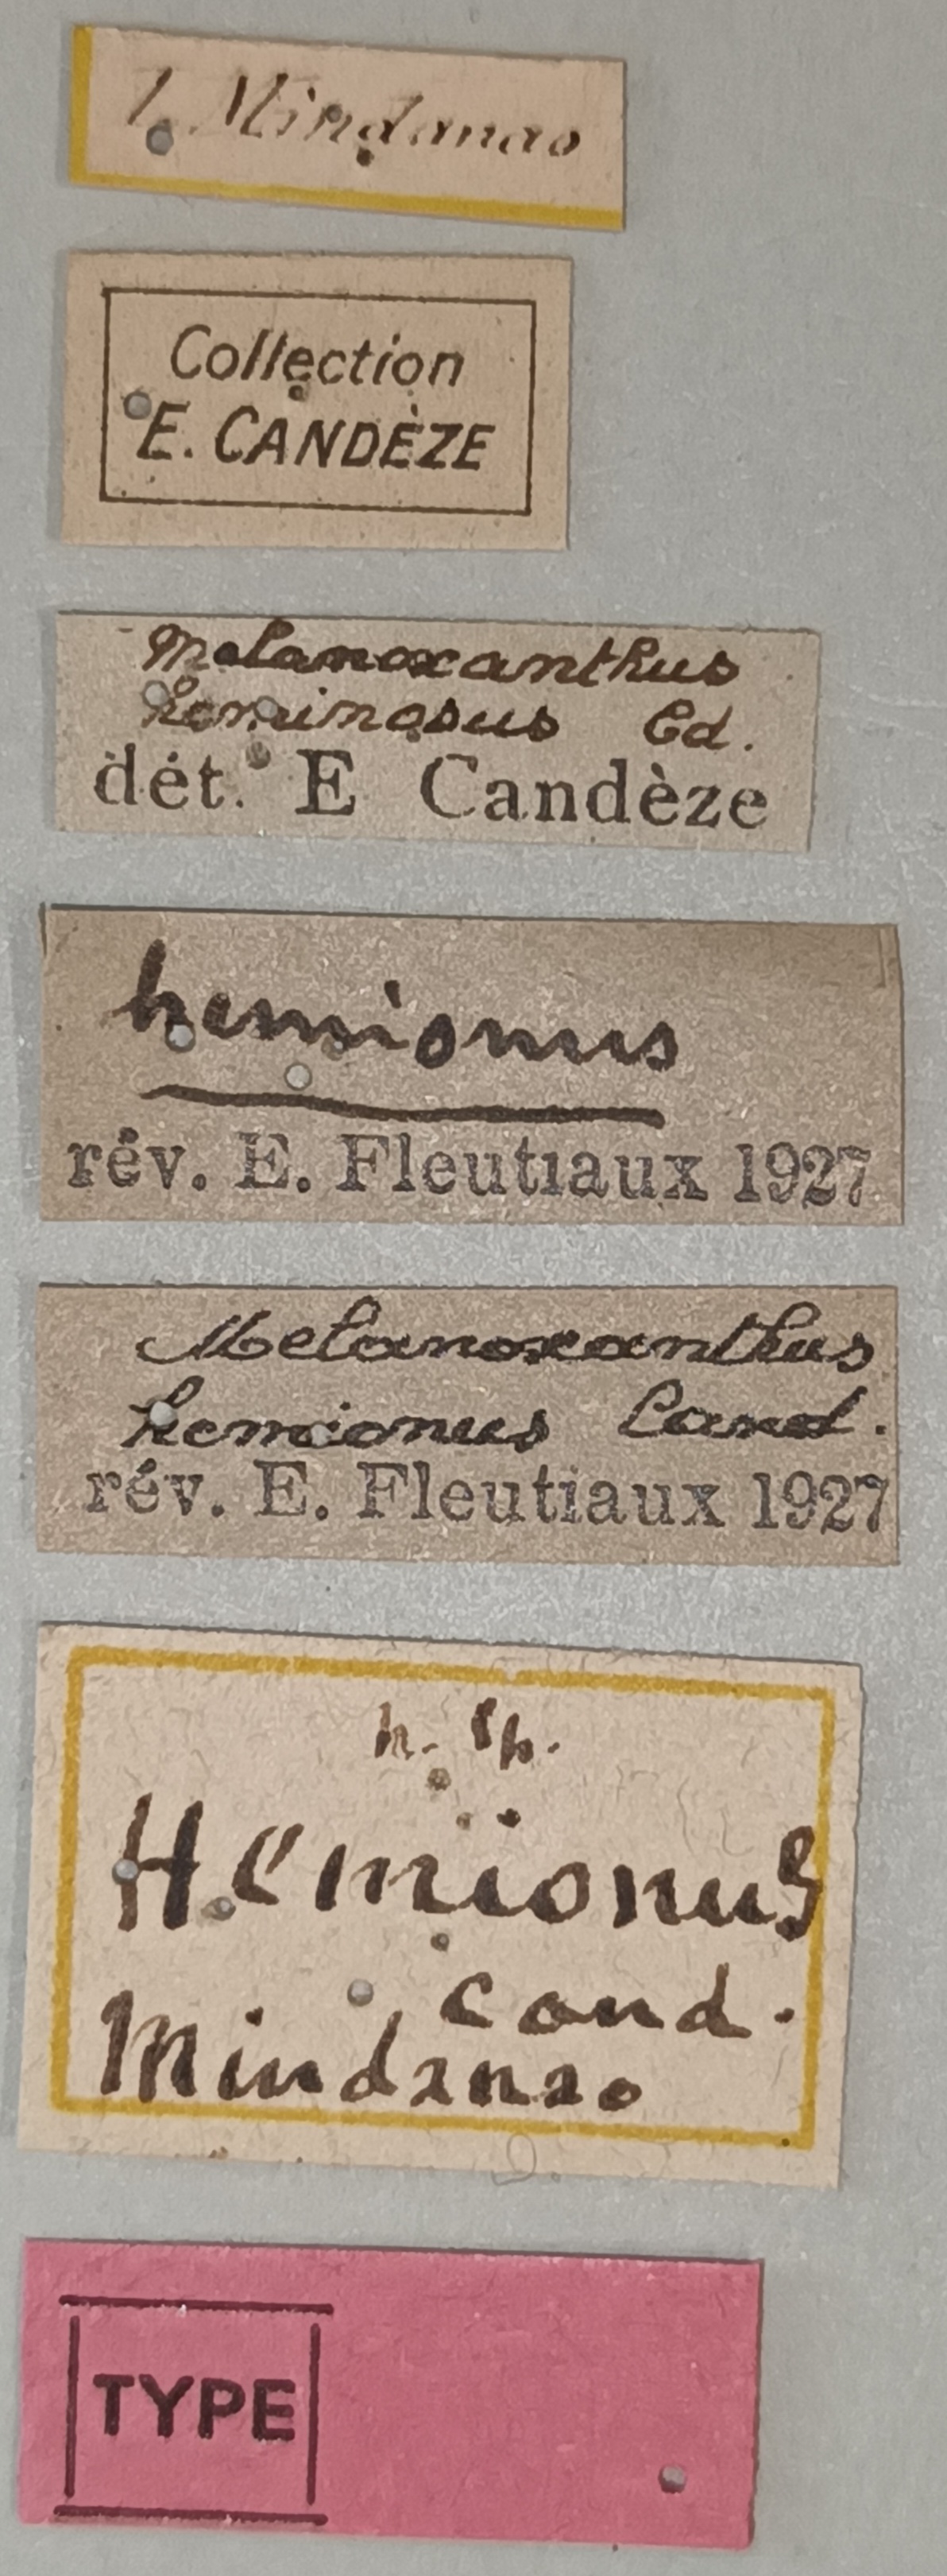 I. Mindanao
Collection
E. CANDÈZE
Melanoxanthus
heminosus Cd.
dét. E Candèze
hemionus
rév. E. Fleutiaux 1927
Melanoxanthus
hemionus Cand.
rév. E. Fleutiaux 1927
n. sp.
Hemionus
Cand.
Mindanao
TYPE